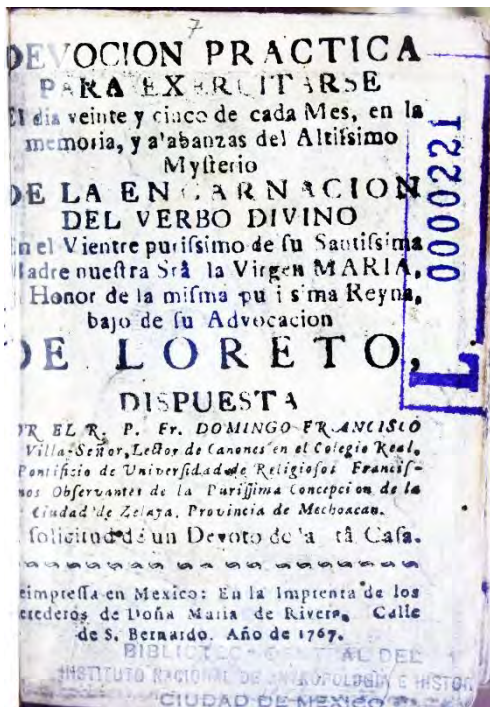 7
DEVOCION PRACTICA
PARA EXERCITARSE
El dia veinte y cinco de cada Mes, en la
memoria, y a'abanzas del Altiſsimo
Myſterio
DE LA ENCARNACION
DEL VERBO DIVINO
En el Vientre puriſsimo de ſu Santiſsima
Madre nueſtra Srâ la Virgen MARIA,
Honor de la miſma pu i sima Reyna,
bajo de ſu Advocacion
DE LORETO,
DISPUESTA
POR EL R. P. Fr. DOMINGO FRANCISCO
Villa-Señor, Lector de Canones en el Colegio Real,
Pontificio de Univerſidad de Religioſos Franciſ-
nos Obſervantes de la Puriſſima Concepcion de la
Ciudad de Zelaya, Provincia de Mechoacan.
ſolicitud de un Devoto de 'a tâ Caſa.
eimpreſſa en Mexico: En la Imprenta de los
erederos de Doña Maria de Rivera, Calle
de S. Bernardo. Año de 1767.
BIBLIOTECA CENTRAL DEL
INSTITUTO NACIONAL DE ANTROPOLOGIA E HISTOR
CIUDAD DE MEXICO
L 0000221